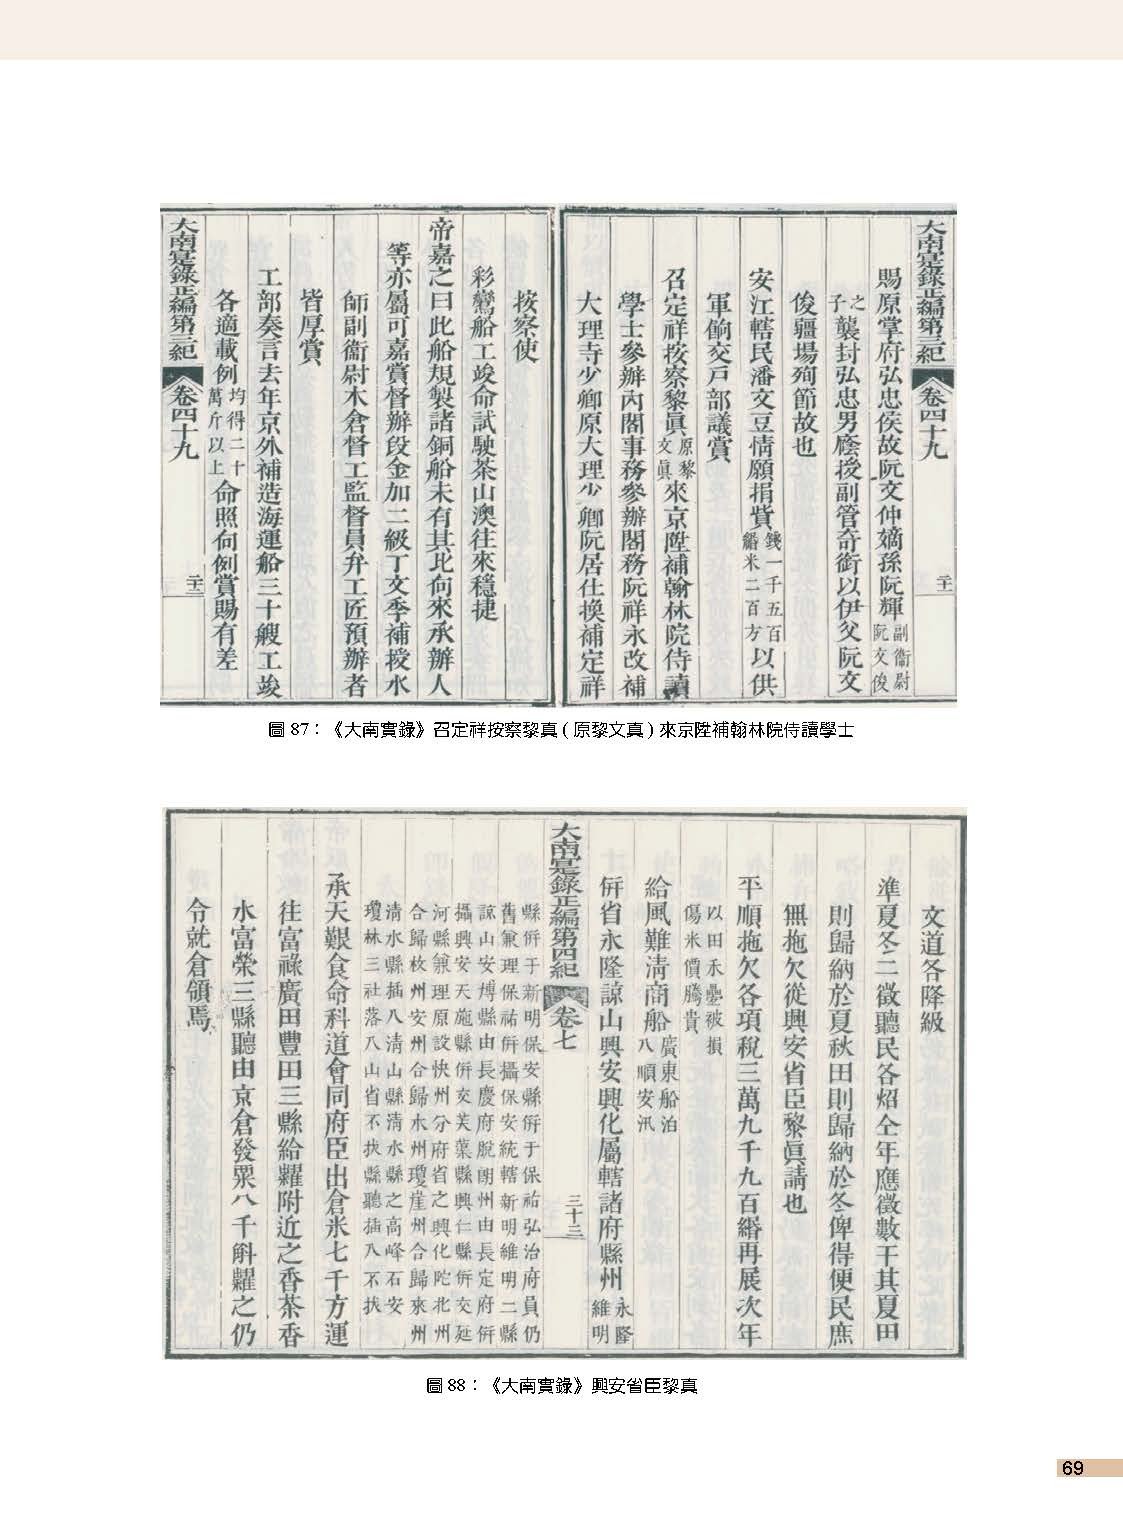 大南寔錄正編第三紀 卷四十九
賜原掌府弘忠侯故阮文仲嫡孫阮輝副衞尉阮文俊
之子襲封弘忠男廕授副管奇銜以伊父阮文
俊疆場殉節故也
安江轄民潘文豆情願捐貲錢一千五百緡米二百方以供
軍餉交戶部議賞
召定祥按察黎眞原黎文眞來京陞補翰林院侍讀
學士參辦內閣事務參辦閣務阮祥永改補
大理寺少卿原大理少卿阮居仕換補定祥
按察使
彩鸞船工竣命試駛茶山澳往來穩捷
帝嘉之曰此船規製諸銅船未有其比向來承辦人
等亦屬可嘉賞督辦段金加二級丁文季補授水
師副衞尉木倉督工監督員弁工匠預辦者
皆厚賞
工部奏言去年京外補造海運船三十艘工竣
各適載例均得二十萬斤以上命照向例賞賜有差
大南寔錄正編第三紀 卷四十九
圖 87：《大南實錄》召定祥按察黎真 ( 原黎文真 ) 來京陞補翰林院侍讀學士
文道各降級
準夏冬二徵聽民各炤全年應徵數干其夏田
則歸納於夏秋田則歸納於冬俾得便民庶
無拖欠從興安省臣黎眞請也
平順拖欠各項稅三萬九千九百緡再展次年
以田禾疊被損傷米價騰貴
給風難清商船廣東船泊八順安汛
倂省永隆諒山興安興化屬轄諸府縣州永隆維明
大南寔錄正編第四紀 卷七 三十三
縣倂于新明保安縣倂于保祐弘治府員仍
舊兼理保祐倂攝保安統轄新明維明二縣
諒山安博縣由長慶府脫朗州由長定府倂
攝興安天施縣倂文芙蕖縣興仁縣倂交延
河縣兼理原設快州分府省之興化陀北州
合歸枚州安州合歸水州瓊崖州合歸來州
清水縣插八清山縣清水縣之高峰石安
瓊林三社落八山省不扶縣聽插八不扶
承天艱食命科道會同府臣出倉米七千方運
往富祿廣田豐田三縣給糶附近之香茶香
水富榮三縣聽由京倉發粟八千斛糶之仍
令就倉領焉
圖 88：《大南實錄》興安省臣黎真
69